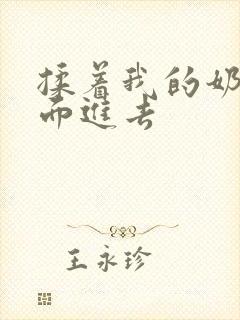 揉着我的奶
而进去
王永珍